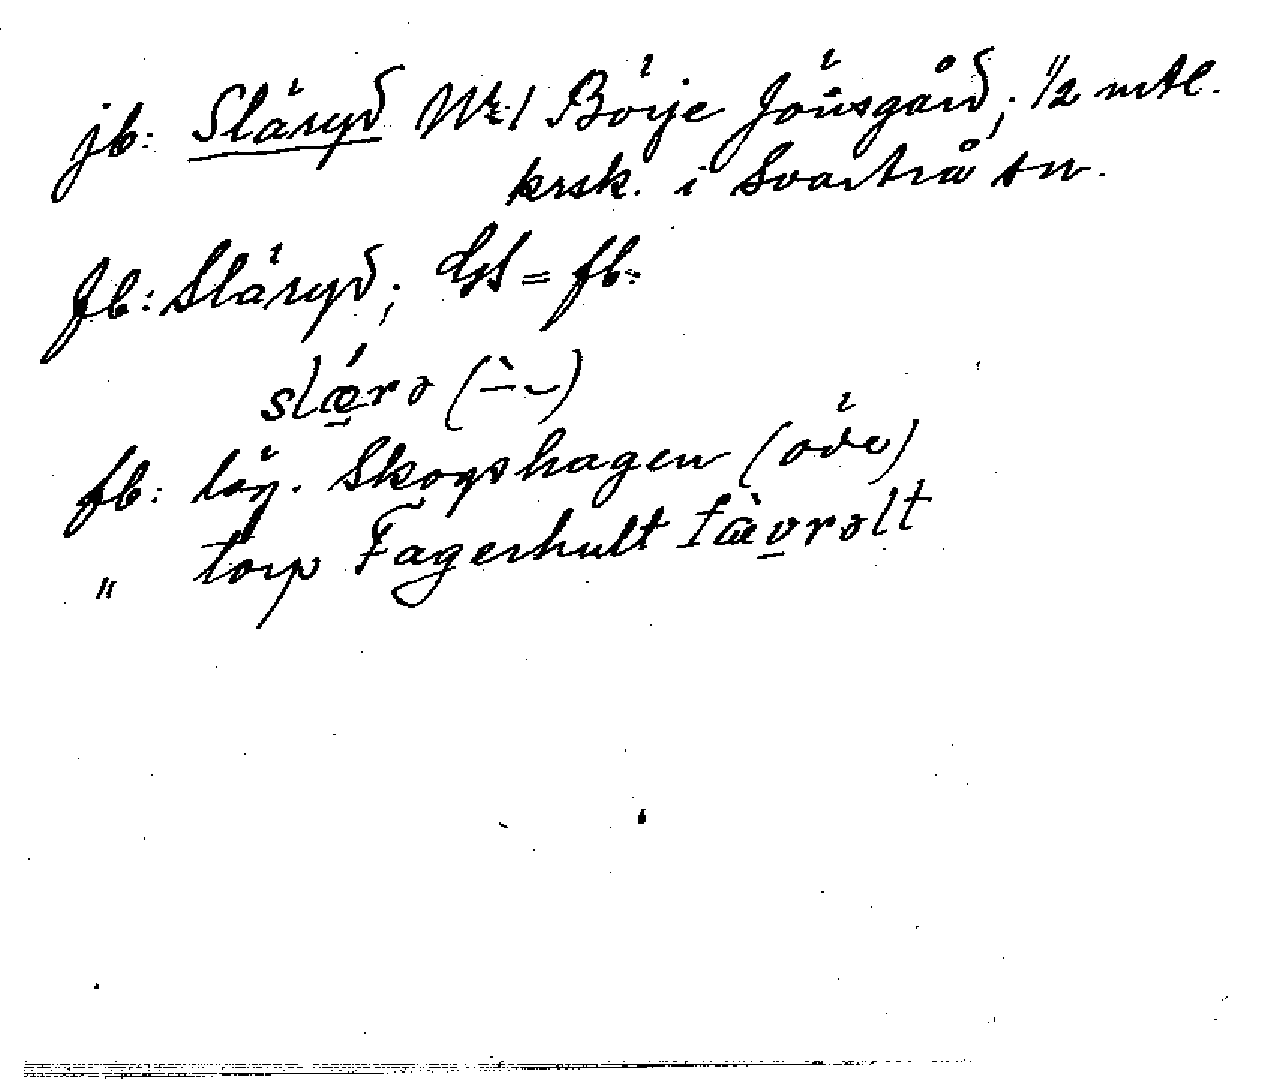 jb: Släryd Nr 1 Börje Jönsgård; 1/2 mtl.
krsk. i Svartrå sn.
fb: Släryd; GS = fb:
slǽrə (–̀ ⏑)
fb: läg. Skogshagen (öde)
" torp Fagerhult fæ̀vrəlt